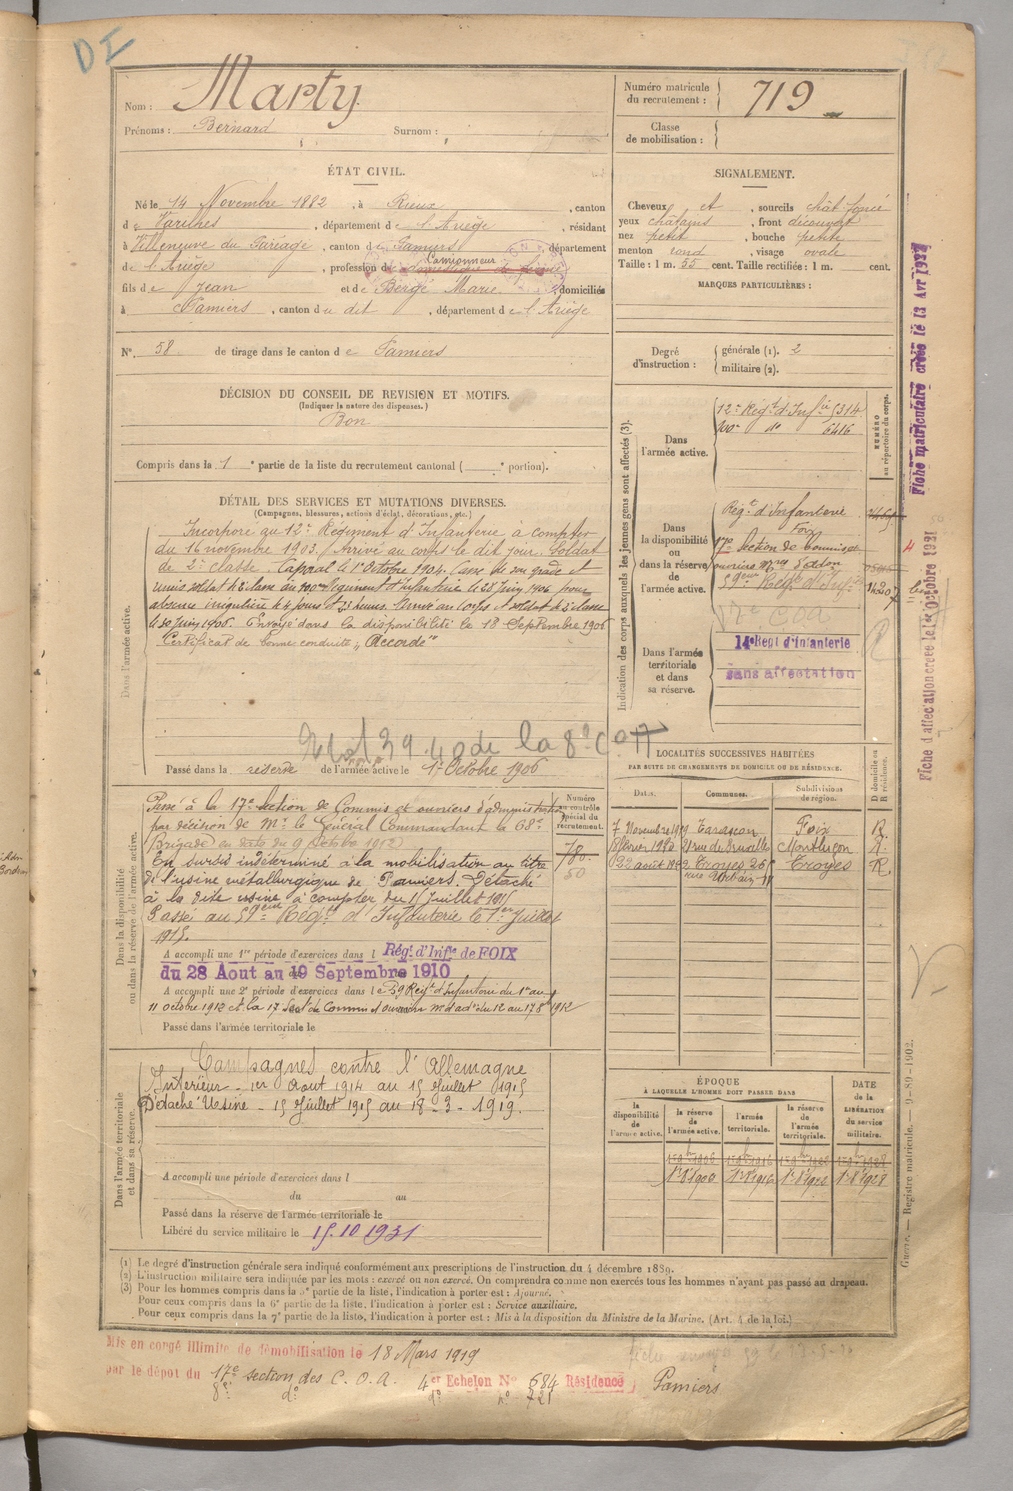 DI
Nom : Marty
Prénoms : Bernard Surnom :
Numéro matricule du recrutement : 719
Classe de mobilisation :
ÉTAT CIVIL.
Né le 14 Novembre 1882, à Rieux, canton
de Varilhes, département de l'Ariège, résidant
à Villeneuve du Paréage, canton de Pamiers, département
Camionneur
de l'Ariège, profession de domestique de ferme
fils de Jean et de Bergé Marie domiciliés
à Pamiers, canton du dit, département de l'Ariège
N°. 58 de tirage dans le canton de Pamiers
SIGNALEMENT.
Cheveux et, sourcils chât foncé
yeux châtains, front découvert
nez petit, bouche petite
menton rond, visage ovale
Taille : 1 m. 55 cent. Taille rectifiée : 1 m. cent.
MARQUES PARTICULIÈRES :
Degré d'instruction : générale (1). 2
militaire (2).
DÉCISION DU CONSEIL DE REVISION ET MOTIFS.
(Indiquer la nature des dispenses.)
Bon
Compris dans la 1e partie de la liste du recrutement cantonal ( e portion).
DÉTAIL DES SERVICES ET MUTATIONS DIVERSES.
(Campagnes, blessures, actions d'éclat, décorations, etc.)
Dans l'armée active.
Incorporé au 12e Régiment d'Infanterie à compter
du 14 novembre 1903. Arrivé au corps le dit jour. Soldat
de 2e classe. Caporal le 1er Octobre 1904. Cassé de son grade et
remis soldat de 2e classe au 100e Régiment d'infanterie le 28 juin 1906 pour
absence irrégulière de 4 jours et 23 heures. Arrivé au corps et soldat de 2e classe
le 30 juin 1906. Envoyé dans la disponibilité le 18 Septembre 1906
Certificat de bonne conduite „ Accordé"
39.40 de la 8e COA
Passé dans la réserve de l'armée active le 1er Octobre 1906
Indication des corps auxquels les jeunes gens sont affectés (3).
Dans l'armée active.
12e Régt d'Infie 5314
100e do 6416
NUMÉRO au répertoire du corps.
Dans la disponibilité ou dans la réserve de l'armée active.
Régt d'Infanterie
Foix
17e Section de Commis et
ouvriers Mres d'adon
59ème Régt d'Infie
17e COA
Dans l'armée territoriale et dans sa réserve.
14e Régt d'Infanterie
sans affectation
Fiche matriculaire créée le 13 Avr 1932
Fiche d'affectation créée le 1er Octobre 1931
LOCALITÉS SUCCESSIVES HABITÉES
PAR SUITE DE CHANGEMENTS DE DOMICILE OU DE RÉSIDENCE.
Dates. Communes. Subdivisions de région. D domicile ou R résidence.
7 Novembre Tarascon Foix R.
8 février 21 rue de Montluçon R.
22 août Troyes 26 Troyes R
rue Urbain IV
Numéro au contrôle spécial du recrutement.
780
50
Dans la disponibilité ou dans la réserve de l'armée active.
Passé à la 17e section de Commis et ouvriers d'administration
par décision de Mr le Général Commandant la 68e
Brigade en date du 9 Octobre 1912
En sursis indéterminé à la mobilisation au titre
de l'usine métallurgique de Pamiers. Détaché
à la dite usine à compter du 15 juillet 1915
Passé au 59ème Régt d'Infanterie le 1er Juillet
1915.
A accompli une 1re période d'exercices dans l Régt d'Infie de FOIX
du 28 Aout au 19 Septembre 1910
A accompli une 2e période d'exercices dans l e 59 Régt d'Infanterie du 1er au
11 octobre 1912 et la 17 Sectn de Commis et ouvriers mres d'adon du 12 au 17 8bre 1912
Passé dans l'armée territoriale le
Dans l'armée territoriale et dans sa réserve.
Campagnes contre l'Allemagne
Intérieur - 1er Août 1914 au 15 Juillet 1915
Détaché Usine - 15 Juillet 1915 au 18-3-1919.
A accompli une période d'exercices dans l
du au
Passé dans la réserve de l'armée territoriale le
Libéré du service militaire le 15.10 1931
ÉPOQUE
À LAQUELLE L'HOMME DOIT PASSER DANS
la disponibilité de l'armée active. la réserve de l'armée active. l'armée territoriale. la réserve de l'armée territoriale. DATE de la LIBÉRATION du service militaire.
1er 8 1906 1er 8 1916 1er 8 1922 1er 8 1928
Guerre. — Registre matricule. — 9-89-1902.
(1) Le degré d'instruction générale sera indiqué conformément aux prescriptions de l'instruction du 4 décembre 1889.
(2) L'instruction militaire sera indiquée par les mots : exercé ou non exercé. On comprendra comme non exercés tous les hommes n'ayant pas passé au drapeau.
(3) Pour les hommes compris dans la 5e partie de la liste, l'indication à porter est : Ajourné.
Pour ceux compris dans la 6e partie de la liste, l'indication à porter est : Service auxiliaire.
Pour ceux compris dans la 7e partie de la liste, l'indication à porter est : Mis à la disposition du Ministre de la Marine. (Art. 4 de la loi.)
Mis en congé illimité de démobilisation le 18 Mars 1919
par le dépôt du 17e section des C. O. A. 4er Echelon N° 684 Résidence ; Pamiers
8e do do no 721